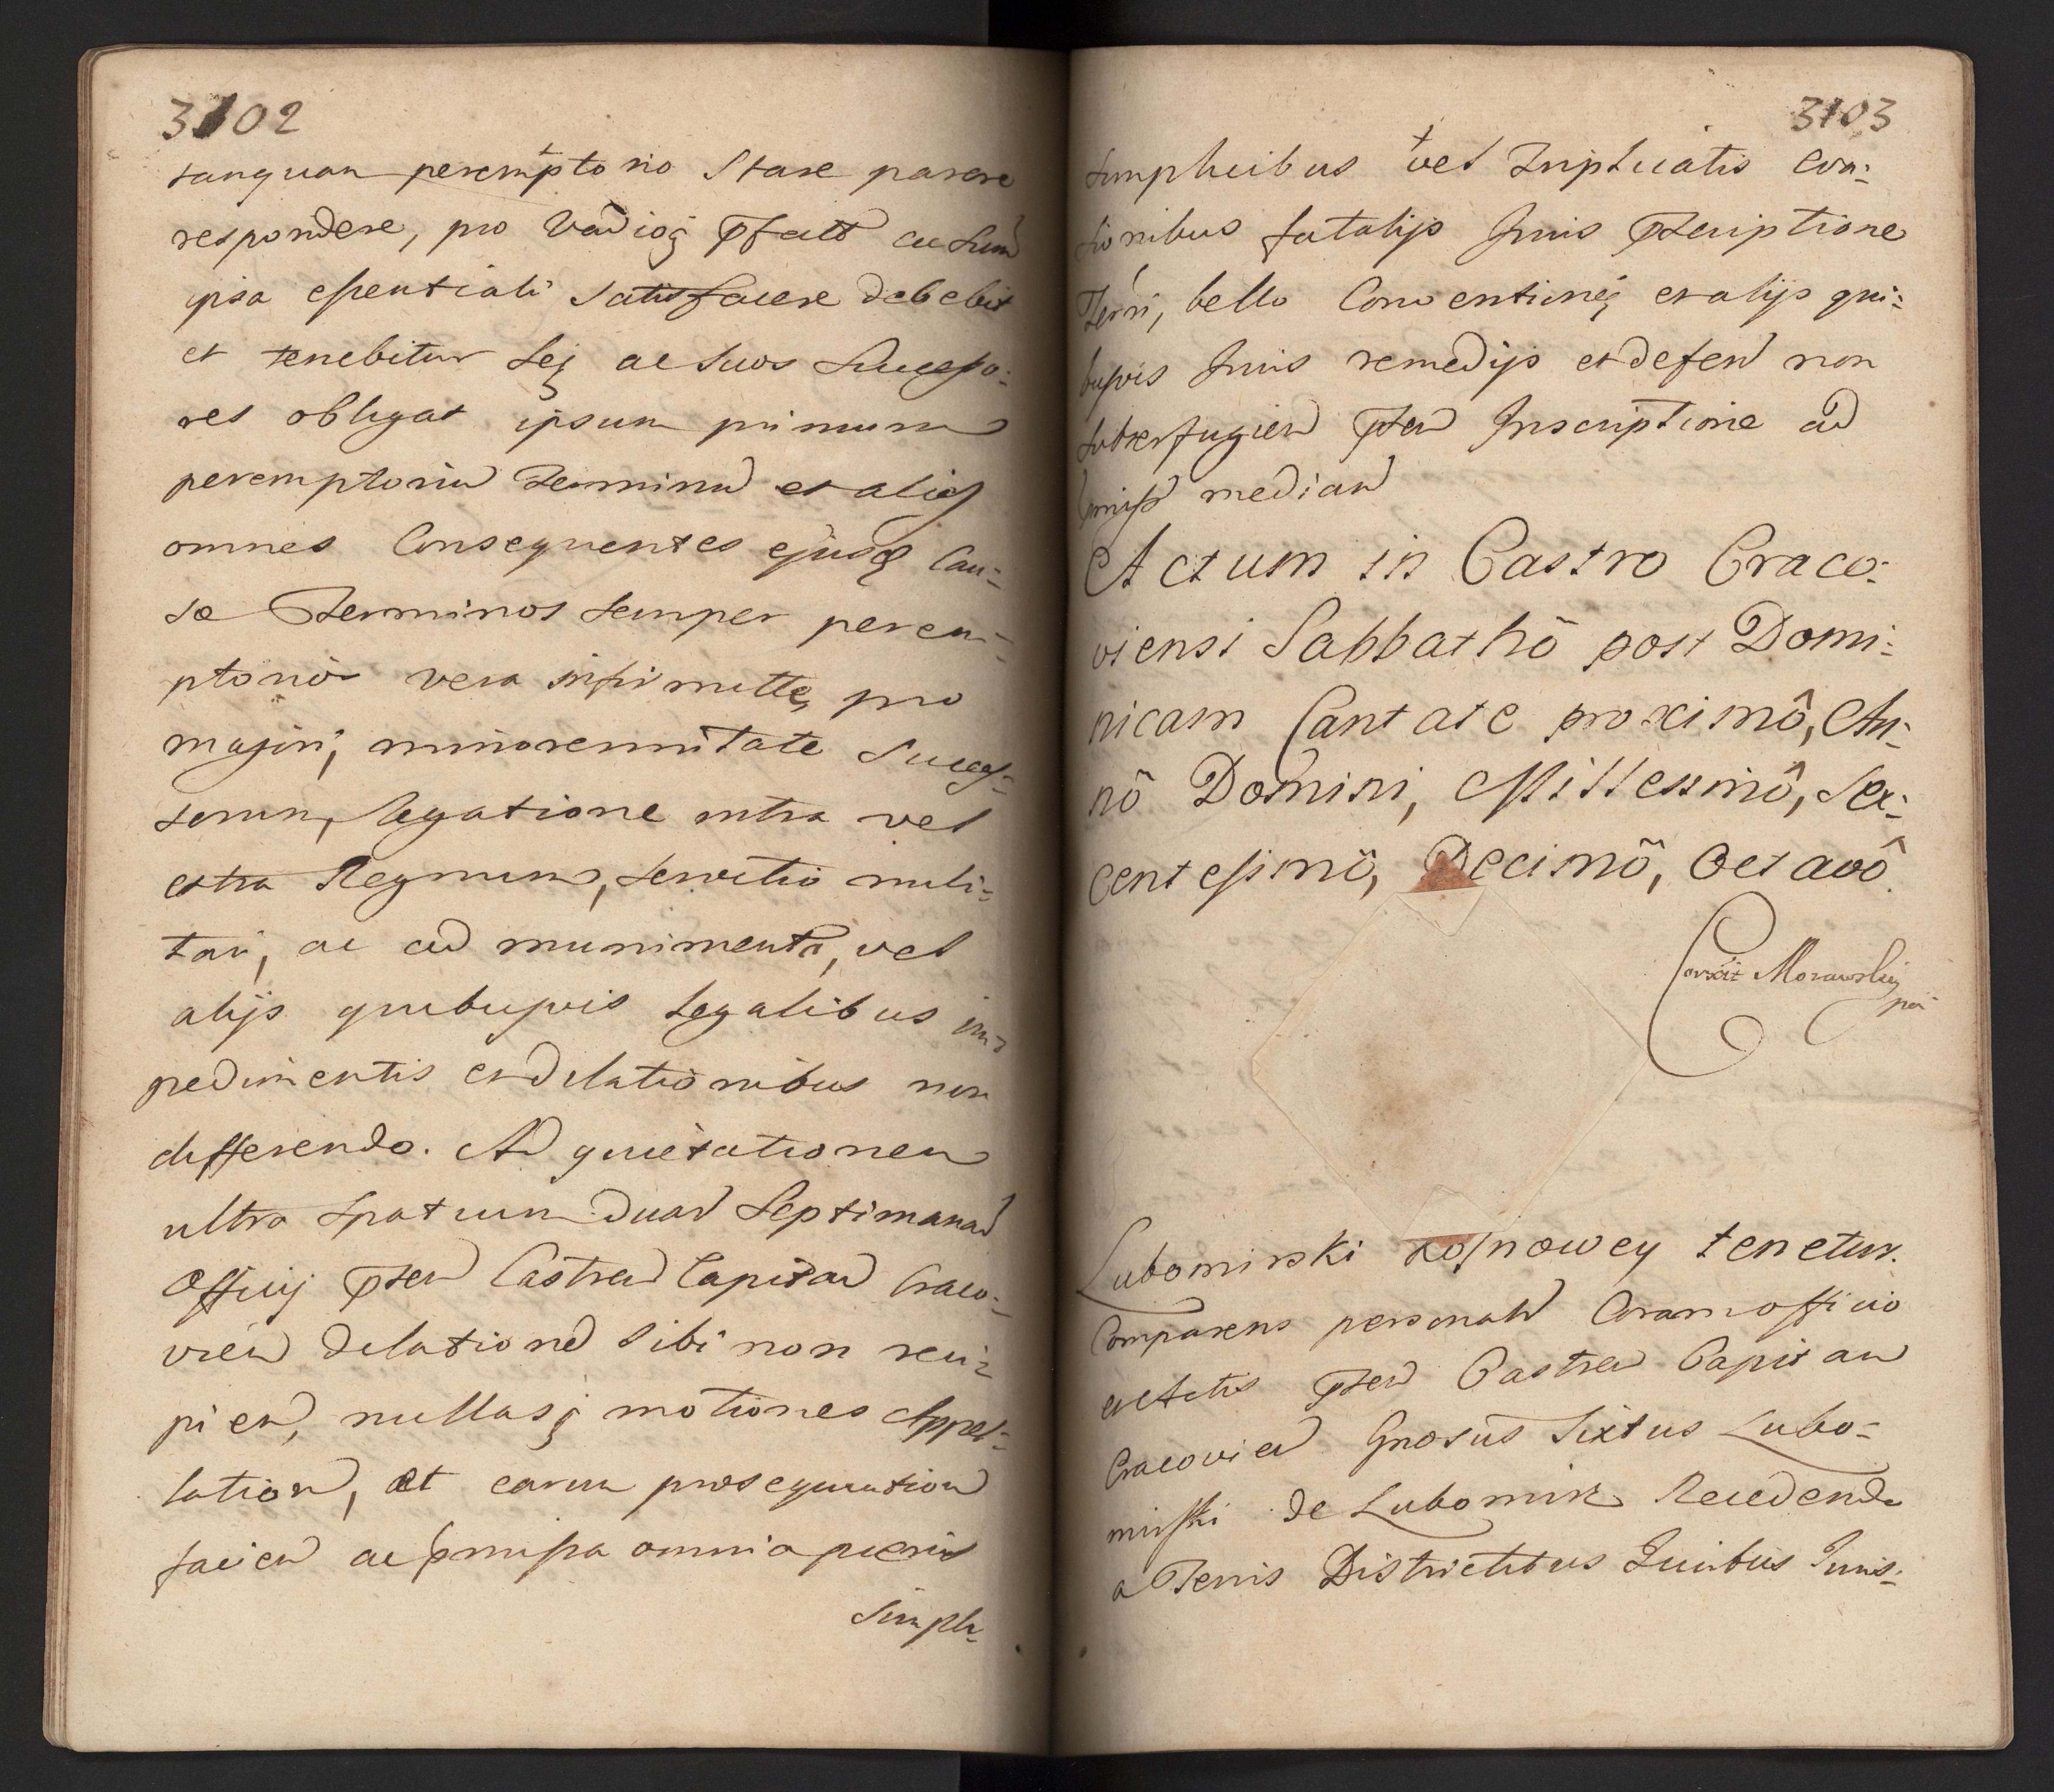 3102
tanquam peremptorio Stare parere
respondere, pro Vadioq pfatt cu Sum
ipsa essentiali Satisfacere debebit
et tenebitur Seq ac Suos Successo:
res obligat ipsum primum
peremptoriu Terminu et alios
omnes Consequentes ejusq Cau:
sæ Terminos Semper perem:
ptorios vera infirmitte, pro
majori, minorennitate Succes:
sorum, legatione intra vel
extra Regnum, Servitio mili:
tari, ac ad munimenta, vel
alijs quibusvis legalibus im:
pedimentis et dilationibus non
differendo. Ad quietationem
ultra Spatium duar Septimanar
Officij pten Castren Capitan Craco:
vien dilatione Sibi non reci:
pien, nullasq motiones Appel:
lation, et earum prosequution
facien ac pmissa omnia
Simpli:
3103
Simplicibus vel Triplicatis
tionibus fatalijs Juris pscriptione
Terri, bello Conventioneq et alijs qui:
busvis Juris remedijs et defen non
Subterfugien pten Inscriptione ad
pmiss median
Actum in Castro Craco:
viensi Sabbathô post Domi:
nicam Cantate proximô, An:
nô Domini, Millessimô, Sex:
centessimô, Decimô, Octavô.
Corrxit Morawskij
Lubomirski tenetur.
Comparens personalr Coram officio
et Actis pten Castren Capitan
Cracovien Gnosus Sixtus Lubo:
mirski de Lubomirz Recedendo
a Terris Districtibus Juribus Juris: